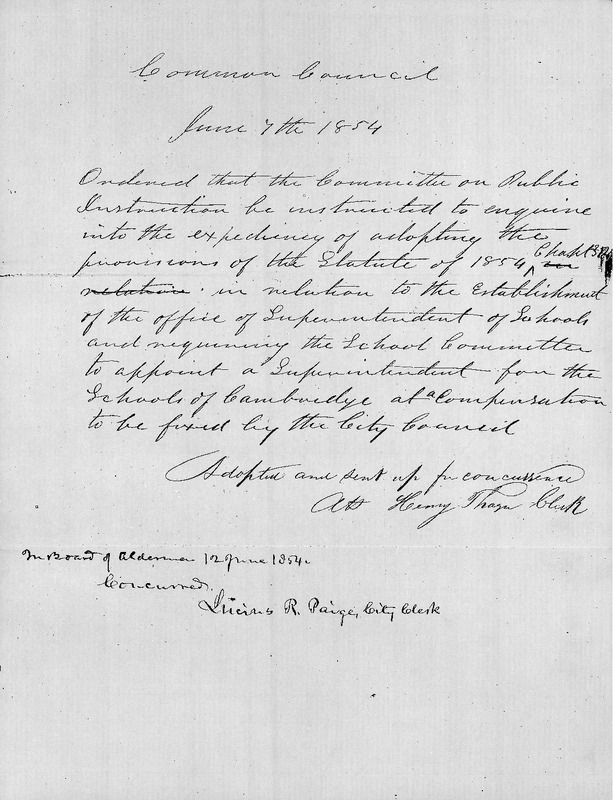 Common Council
June 7th 1854
Ordered that the Committee on Public
Instruction be instructed to enquire
into the expediency of adopting the
provisions of the Statute of 1854, Chapt
relation in relation to the Establishment
of the office of Superintendent of Schools
and requiring the School Committee
to appoint a Superintendent for the
Schools of Cambridge at a Compensation
to be fixed by the City Council
Adopted and sent up for concurrence
Att Henry Thayer Clerk
In Board of Aldermen 12 June 1854.
Concurred.
Lucius R. Paige, City Clerk